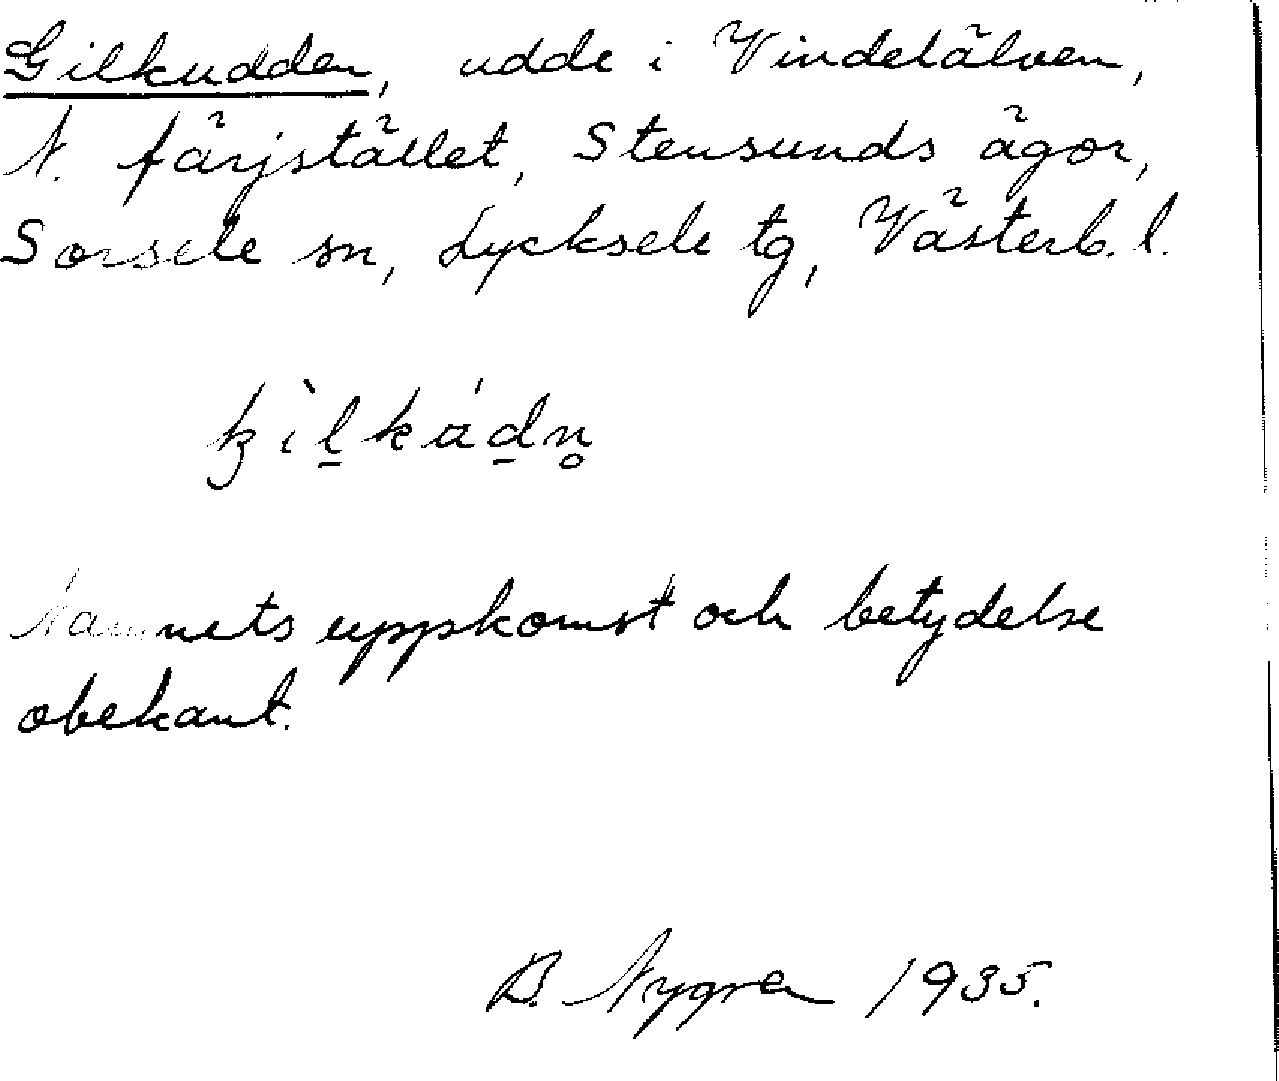 Gilkudden, udde i Vindelälven,
N. färjstället, Stensunds ägor,
Sorsele sn, Lycksele tg, Västerb. l.
Namnets uppkomst och betydelse
obekant.
B. Nygren 1935.